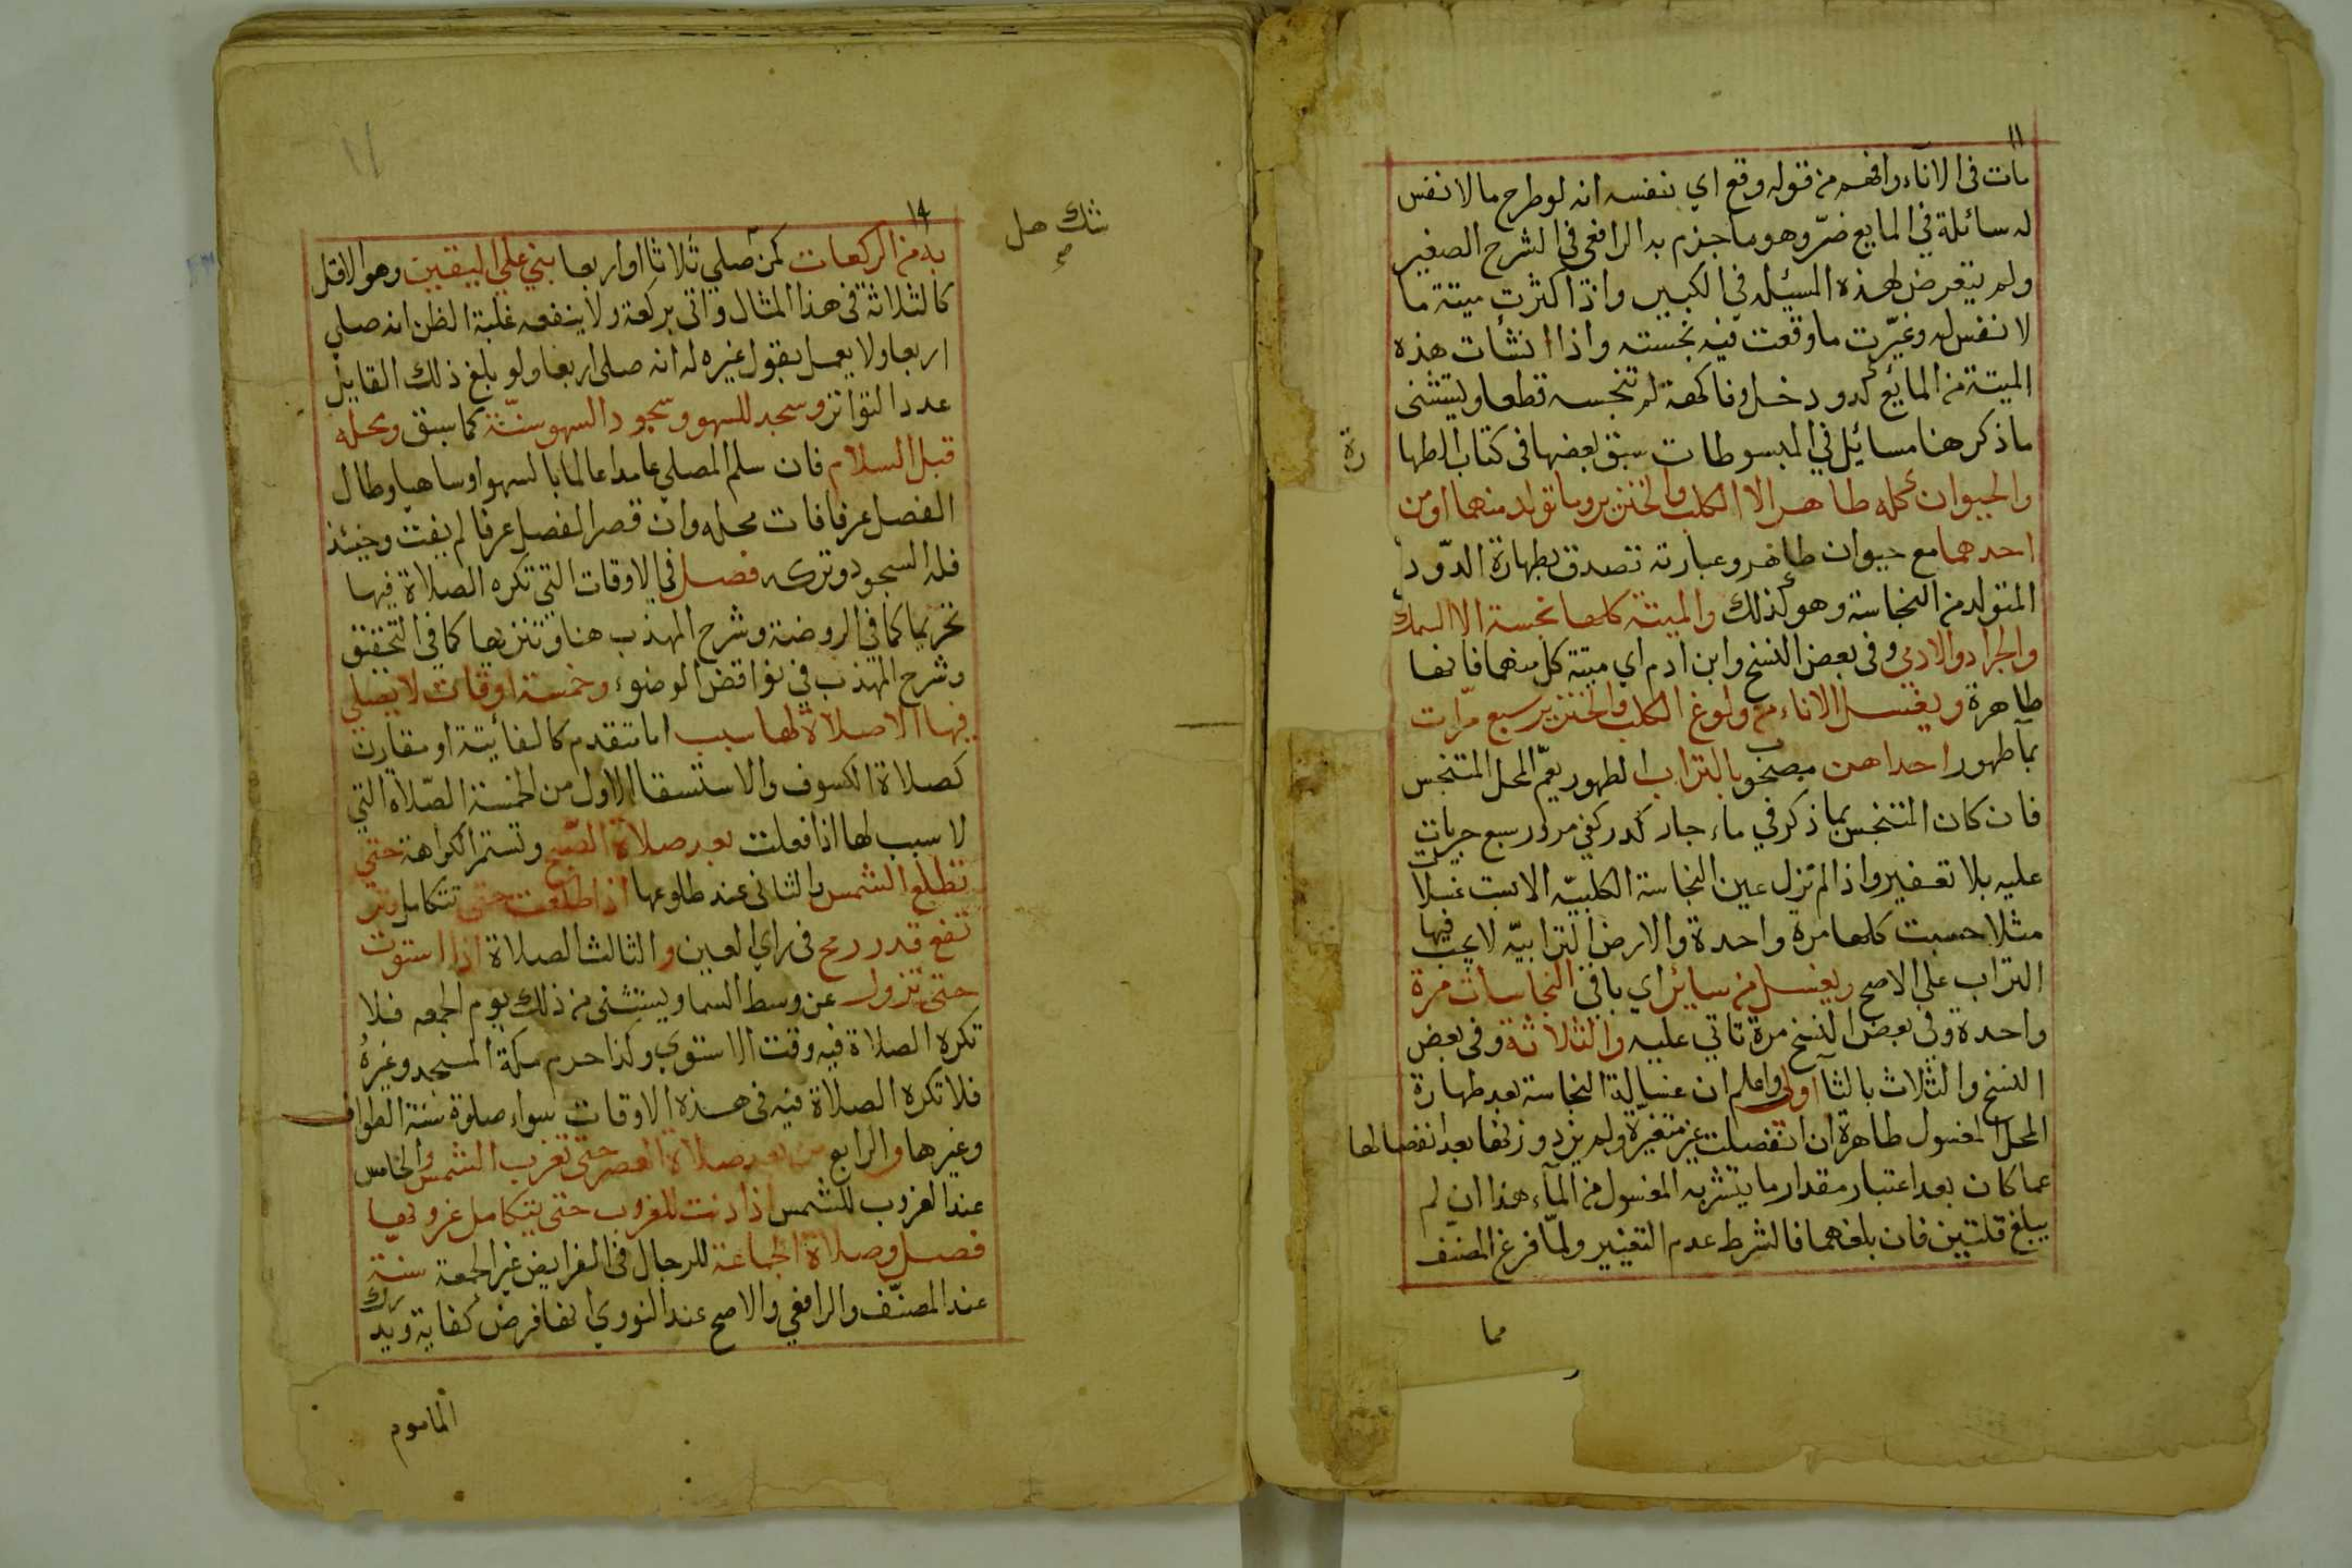 ١١
مات فى الاناء وافهم من قوله وقع اي بنفسه انه لو طرح مالا نفس
له سائلة في المايع ضرّ وهو ما جزم به الرافعى فى الشرح الصغير
ولم يتعرض لهذه المسئله في الكبير واذا كثرت ميتة ما
لا نفس له وغيّرت ما وقعت فيه نجسته واذا انشات هذه
الميتة من المائع كدود خل وفاكهة لم تنجسه قطعا ويستثنى
ما ذكر هنا مسائيل في المبسوطات سبق بعضها فى كتاب الطها
رة
والحيوان كله طاهر الا الكلب والخنزير وما تولد منهما او من
احدهما مع حيوان طاهر وعبارته تصدق بطهارة الدّود
المتولد من النجاسة وهو كذلك والميتة كلها نجسة الا السمك
والجراد والادمي وفى بعض النسخ وابن ادم اي ميتة كل منهما فانها
طاهرة ويغسل الاناء من ولوغ الكلب والخنزير سبع مرّات
بمآ طهور احداهن مصحوبا بالتراب الطهور يعمّ المحل المتنجس
فان كان المتنجس بما ذكر في ماء جار كدر كفي مرور سبع جريات
عليه بلا تعفير واذا لم تزل عين النجاسة الكلبيّه الا بست غسلات
مثلا حسبت كلها مرة واحدة والارض الترابيّه لا يجب فيها
التراب علي الاصح ويغسل من سائر اي باقى النجاسات مرة
واحدة وفى بعض النسخ مرة تاتي عليه والثلاثة وفى بعض
النسخ والثلاث بالتآ اولي واعلم ان غسالة النجاسة بعد طهارة
المحل المغسول طاهرة ان انفصلت غير متغيرّة ولم يزد وزنها بعد انفصالها
عما كان بعد اعتبار مقدار ما يتشربه المغسول من المآء هذا ان لم
يبلغ قلتين فان بلغهما فالشرط عدم التغيير ولمّا فرغ المصنف
مما
١١
شك هل
صح
به من الركعات كمن صلي ثلاثا او اربعا بني علي اليقين وهو الاقل
كالثلاثة فى هذا المثال واتى بركعة ولا ينفعه غلبة الظن انه صلي
اربعا ولا يعمل بقول غيره له انه صلى اربعا ولو بلغ ذلك القايل
عدد التواتر وسجد للسهو وسجود السهو سنّة كما سبق ومحله
قبل السلام فان سلم المصلي عامدا عالما بالسهو او ساهيا وطال
الفصل عرفا فات محله وان قصر الفصل عرفا لم يفت وحينئذ
فله السجود وتركه فصل في الاوقات التي تكره الصلاة فيها
تحريما كما في الروضة وشرح المهذب هنا وتنزيها كما في التحقيق
وشرح المهذب في نواقض الوضوء وخمسة اوقات لا يصلي
فيها الا صلاة لها سبب اما متقدم كالفائتة او مقارن
كصلاة الكسوف والاستسقا الاول من الخمسة الصّلاة التي
لا سبب لها اذا فعلت بعد صلاة الصّبح وتستمر الكراهة حتي
تطلع الشمس والثانى عند طلوعها اذا طلعت حتى تتكامل وتر
تفع قدر رمح فى راي العين والثالث الصلاة اذا استوت
حتى تزول عن وسط السما ويستثنى من ذلك يوم الجمعه فلا
تكره الصلاة فيه وقت الاستوي وكذا حرم مكة المسجد وغيره
فلا تكره الصلاة فيه فى هذه الاوقات سواء صلوة سنة الطواف
وغيرها والرابع من بعد صلاة العصر حتى تغرب الشمس والخامس
عند الغروب للشمس اذا دنت للغروب حتى يتكامل غروبها
فصل وصلاة الجماعة للرجال فى الفرايض غير الجمعة سنة
عند المصنّف والرافعي والاصح عند النووي انها فرض كفاية ويدرك
المأموم